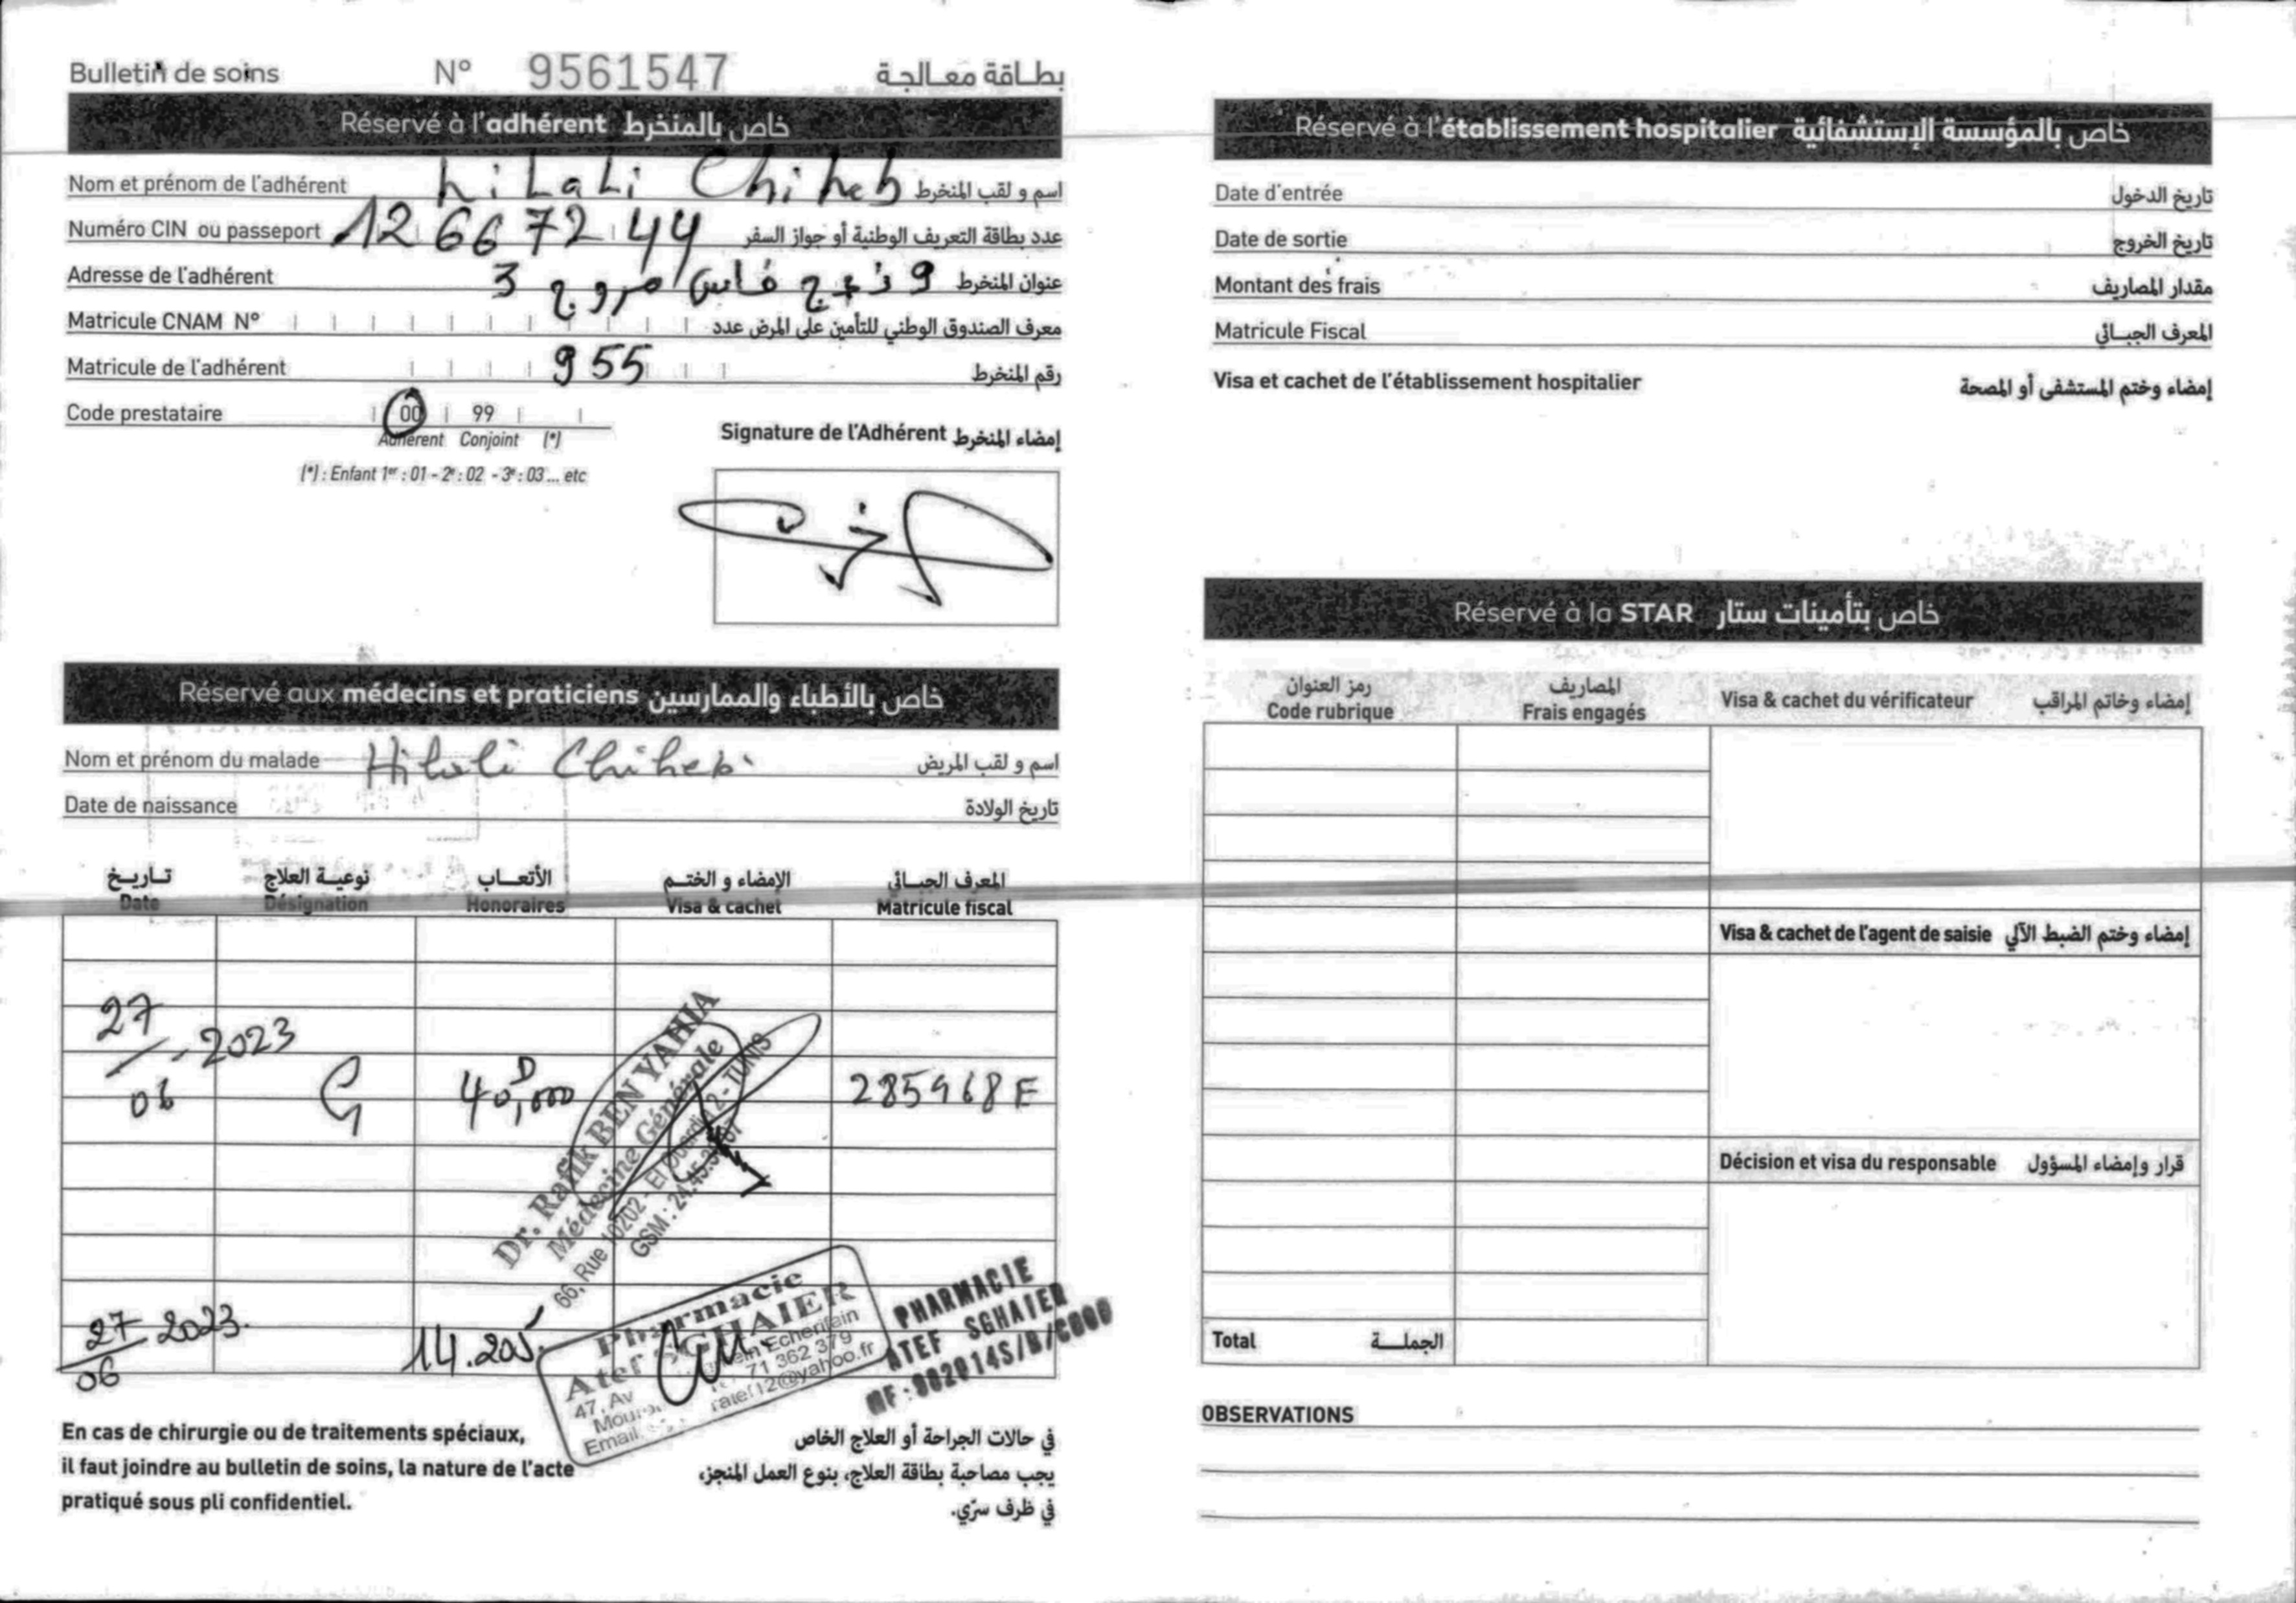 Bulletin de soins N° 9561547 بطاقة معالجة
Réservé à l'adhérent خاص بالمنخرط
Nom et prénom de l'adhérent hiLaLi Chiheb اسم و لقب المنخرط
Numéro CIN ou passeport 12667244 عدد بطاقة التعريف الوطنية أو جواز السفر
Adresse de l'adhérent 9 نهج فاس مروج 3 عنوان المنخرط
Matricule CNAM N° معرف الصندوق الوطني للتأمين على المرض عدد
Matricule de l'adhérent 955 رقم المنخرط
Code prestataire 00 99
Adhérent Conjoint (*)
(*) : Enfant 1er : 01 - 2e : 02 - 3e : 03 ... etc
Signature de l'Adhérent إمضاء المنخرط
Réservé aux médecins et praticiens خاص بالأطباء والممارسين
Nom et prénom du malade Hilali Chiheb اسم و لقب المريض
Date de naissance تاريخ الولادة
تاريخ نوعية العلاج الأتعاب الإمضاء و الختم المعرف الجبائي
Date Désignation Honoraires Visa & cachet Matricule fiscal
27/06-2023 C 40,000 D 285968F
Dr. Rafik BEN YAHIA
Médecine Générale
66, Rue 10202 - El Ouerdia 2 - TUNIS
GSM : 24.45
27/06 2023. 14.205
Pharmacie
Atef SGHAIER
47, Av Echerifain
71 362 379
Email ratef12@yahoo.fr
PHARMACIE
ATEF SGHAIER
MF : 902014S/B/C000
En cas de chirurgie ou de traitements spéciaux,
il faut joindre au bulletin de soins, la nature de l'acte
pratiqué sous pli confidentiel.
في حالات الجراحة أو العلاج الخاص
يجب مصاحبة بطاقة العلاج، بنوع العمل المنجز،
في ظرف سرّي.
Réservé à l'établissement hospitalier خاص بالمؤسسة الإستشفائية
Date d'entrée تاريخ الدخول
Date de sortie تاريخ الخروج
Montant des frais مقدار المصاريف
Matricule Fiscal المعرف الجبائي
Visa et cachet de l'établissement hospitalier إمضاء وختم المستشفى أو المصحة
Réservé à la STAR خاص بتأمينات ستار
رمز العنوان المصاريف
Code rubrique Frais engagés Visa & cachet du vérificateur إمضاء وخاتم المراقب
Visa & cachet de l'agent de saisie إمضاء وختم الضبط الآلي
Décision et visa du responsable قرار وإمضاء المسؤول
Total الجملة
OBSERVATIONS